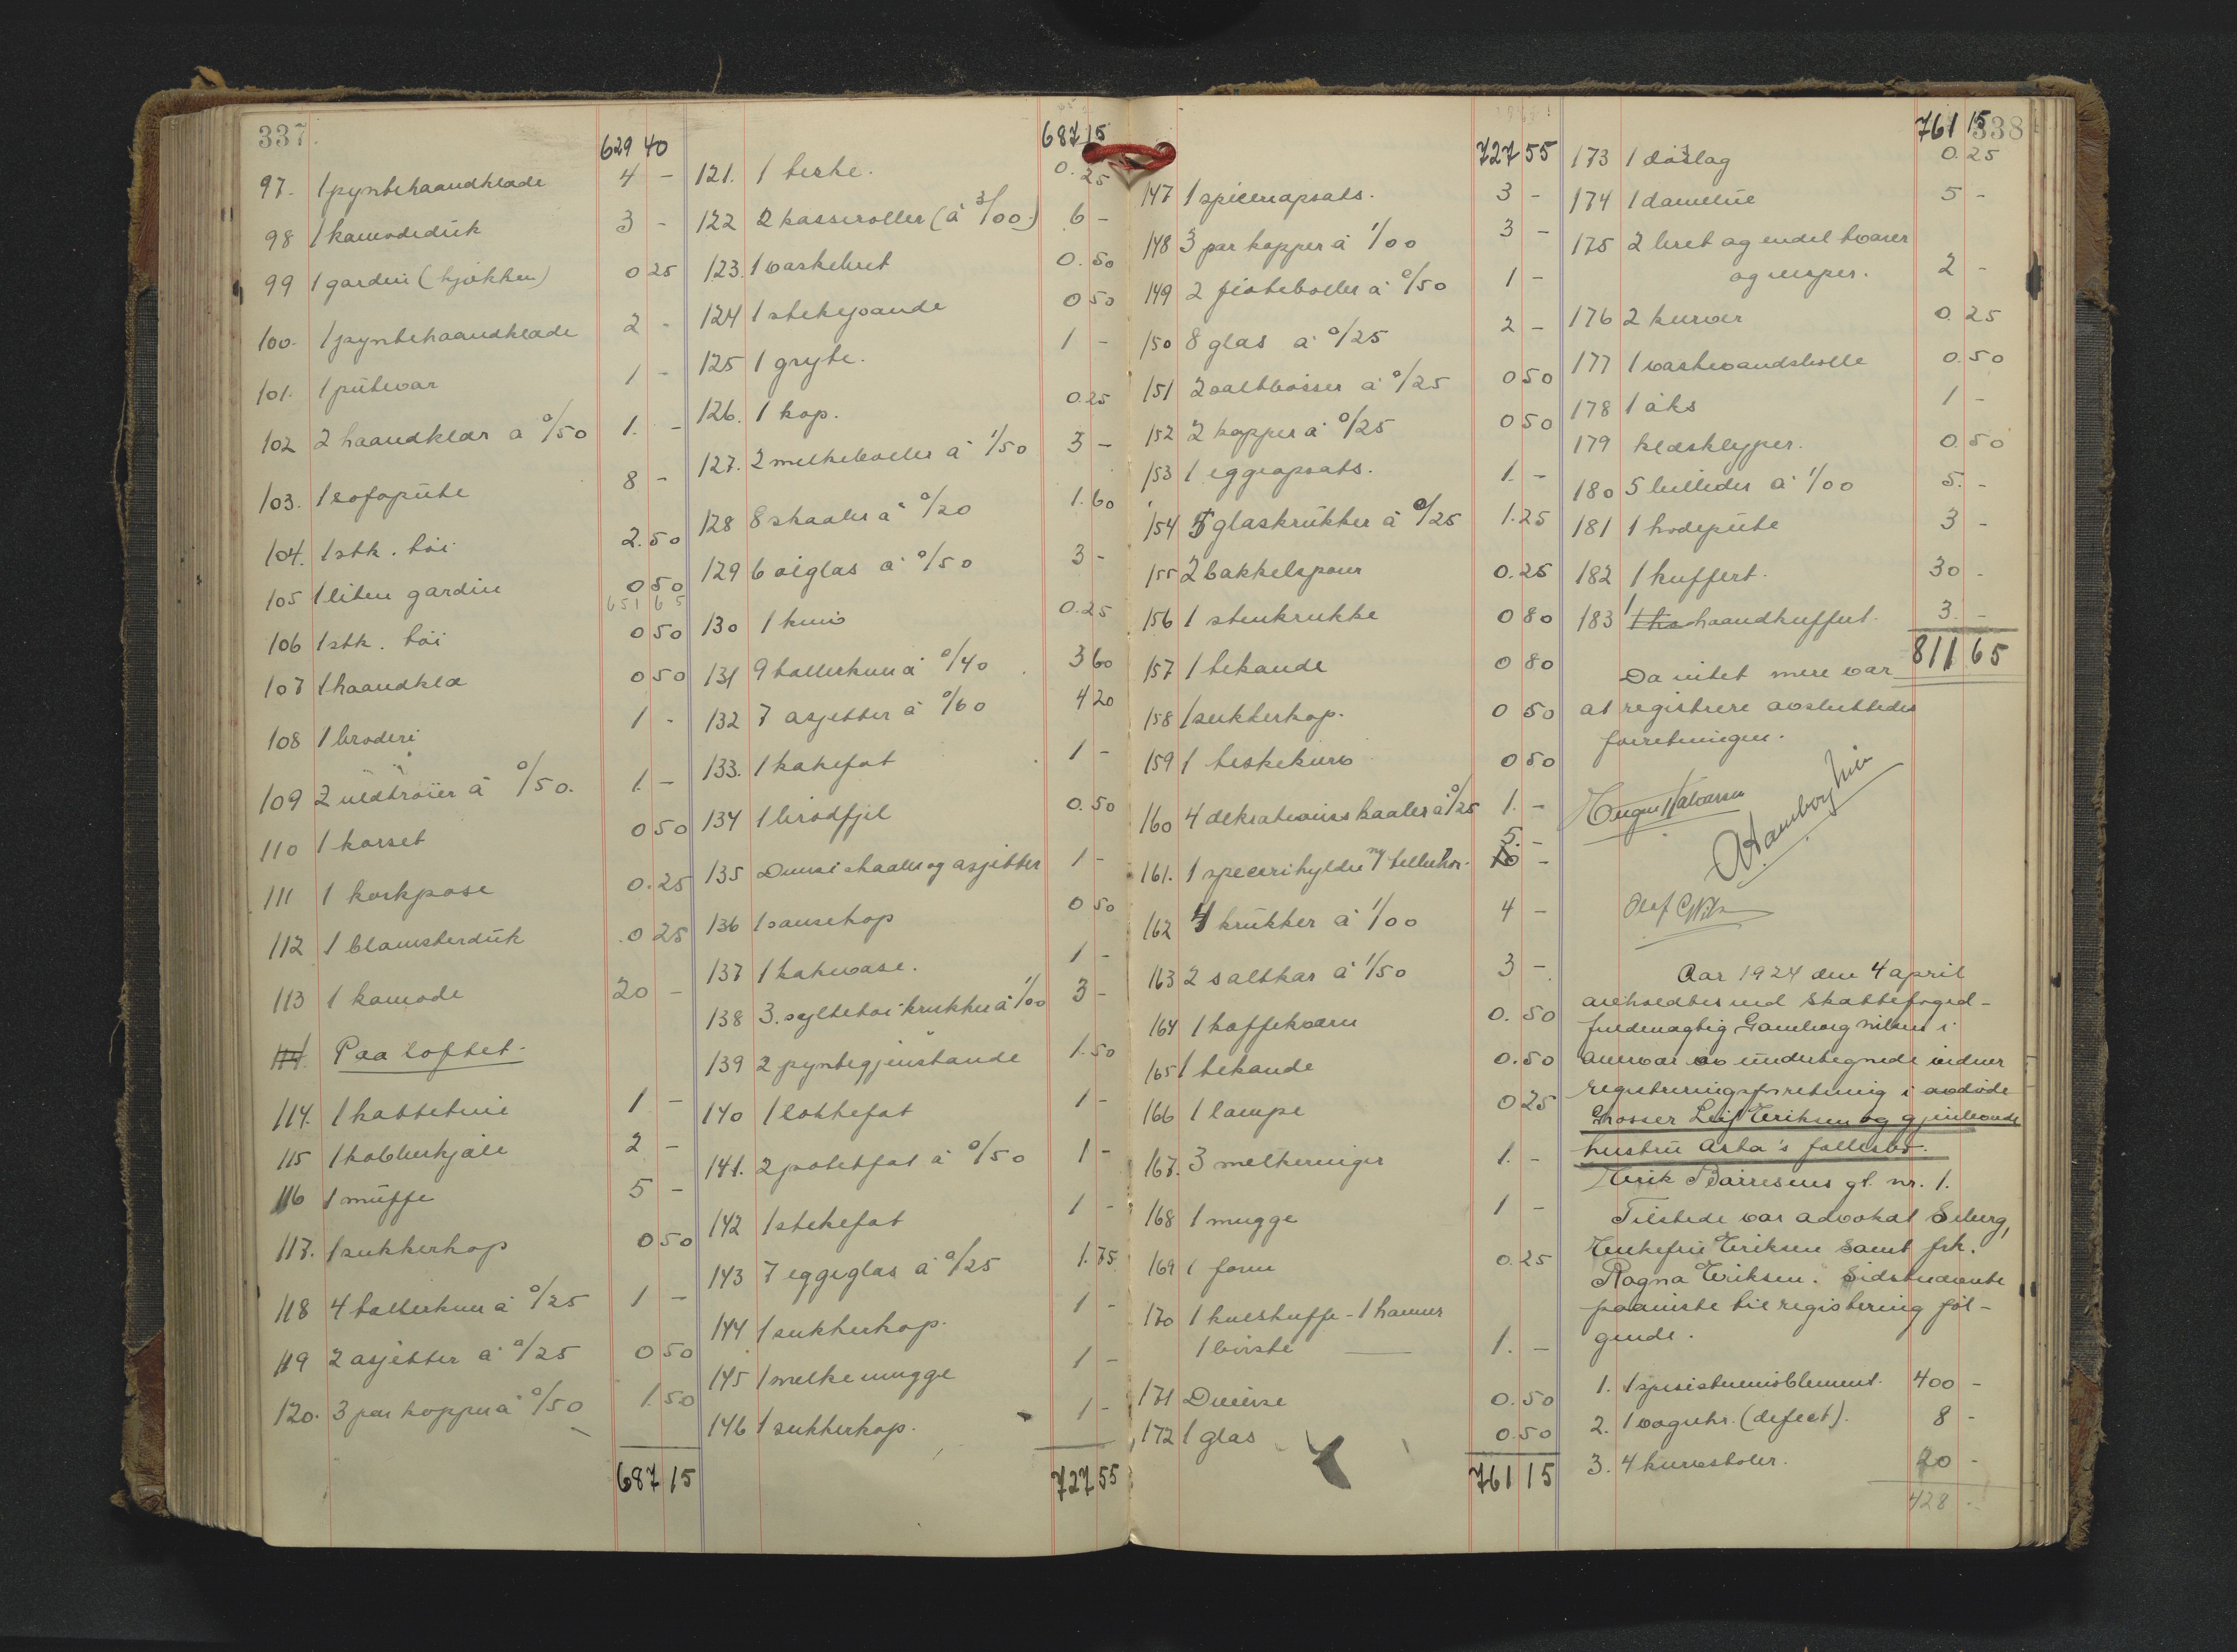 337
629 40
97. 1 pyntehaandklæde 4 -
98 1 kamodedük 3 -
99 1 gardin (kjøkken) 0 25
100. 1 pyntehaandklæde 2 -
101. 1 pütevar 1 -
102 2 haandklær a 0/50 1. -
103. 1 sofapüte 8 -
104. 1 stk. tøi 2.50
105 1 liten gardin 0 50
651 65
106 1 stk. tøi 0 50
107 1 haandklæ 0 50
108 1 broderi 1 -
109 2 üldtrøier à 0/50. 1. -
110 1 korset 0 50
111 1 korkpose 0.25
112 1 blomsterdük 0 25
113 1 kamode 20 -
114. Paa loftet.
114. 1 hattetine 1 -
115 1 kobberkjele 2 -
116 1 müffe 5 -
117. 1 sukkerkop 0 50
118 4 tallerkner à 0/25 1 -
119 2 asjetter à 0/25 0 50
120. 3 par kopper à 0/50 1.50
687 15
687 15
121. 1 terte. 0.25
122 2 kasseroller (à 3/00) 6 -
123. 1 vaskebret 0.50
124 1 stekepande 0 50
125 1 gryte. 1 -
126. 1 kop. 0.25
127. 2 melkeboller à 1/50 3 -
128 8 skaaler à 0/20 1.60
129 6 ølglas à 0/50 3 -
130 1 kniv 0.25
131 9 tallerkner à 0/40 3 60
132 7 asjetter à 0/60 4 20
133. 1 kakefat 1 -
134 1 brødfjel 0.50
135 Diverse skaaler og asjetter 1 -
136 1 sausekop 0 50
137 1 kakevase. 1 -
138 3. syltetøikrukker à 1/00 3 -
139 2 pyntegjenstande 1.50
140 1 lokkefat 1 -
141. 2 potetfat à 0/50 1 -
142 1 stekefat 1 -
143 7 eggeglas à 0/25 1.75
144 1 sukkerkop. 1 -
145 1 melkemugge 1 -
146 1 sukkerkop. 1 -
727 55
727 55
147 1 opsats. 3 -
148 3 par kopper à 1/00 3 -
149 2 fløteboller à 0/50 1 -
150 8 glas à 0/25 2 -
151 2 saltbøsser à 0/25 0 50
152 2 kopper à 0/25 0 50
153 1 eggeopsats. 1. -
154 5 glaskrükker à 0/25 1.25
155 2 bakkelsponer 0.25
156 1 stenkrukke 0 80
157 1 tekande 0 80
158 1 sukkerkop. 0 50
159 1 teskekurv 0 50
160 4 dekrationsskaaler à 0/25 1. -
161. 1 specerihylde 5. -
10 -
162 4 krükker à 1/00 4 -
163 2 saltkar à 1/50 3 -
164 1 kaffekvern 0.50
165 1 tekande 0.50
166 1 lampe 0 25
167. 3 melkeringer 1. -
168 1 mugge 1 -
169 1 form 0.25
170 1 kulskuffe - 1 hammer
1 børste 1. -
171 Diverse 0.50
172 1 glas 0.50
761 15
338
761 15
173 1 dørslag 0.25
174 1 dametine 5 -
175 2 bret og endel tvarer
og visper. 2 -
176 2 kurver 0.25
177 1 vaskevandsbolle 0.50
178 1 øks 1 -
179 klæsklyper. 0.50
180 5 billeder à 1/00 5. -
181 1 hodepüte 3 -
182 1 kuffert. 30 -
183 1 haandkuffert. 3. -
811 65
Da intet mere var
at registrere avsluttedes
forretningen.
Aar 1924 den 4 april
avholdtes ved skattefoged-
fuldmægtig Gamborg Nilsen i
nærvær av undertegnede vidner
registreringsforretning i avdøde
Grosser Leif Eriksen og gjenlevende
hustrü Asta's fællesbo.
Eirik Børresens gt. nr. 1.
Tilstede var advokat Seberg,
Enkefru Eriksen samt frk.
Ragna Eriksen. Sidstnævnte
paaviste til registrering føl-
gende.
1. 1 spisestuemøblement. 400 -
2. 1 væguhr. (defect). 8 -
3. 4 kurvstoler. 20 -
428 -